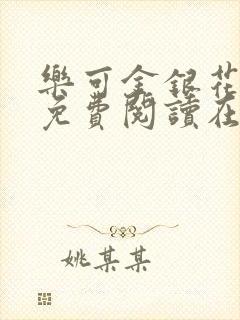 樂可金銀花
免費閱讀在
姚某某